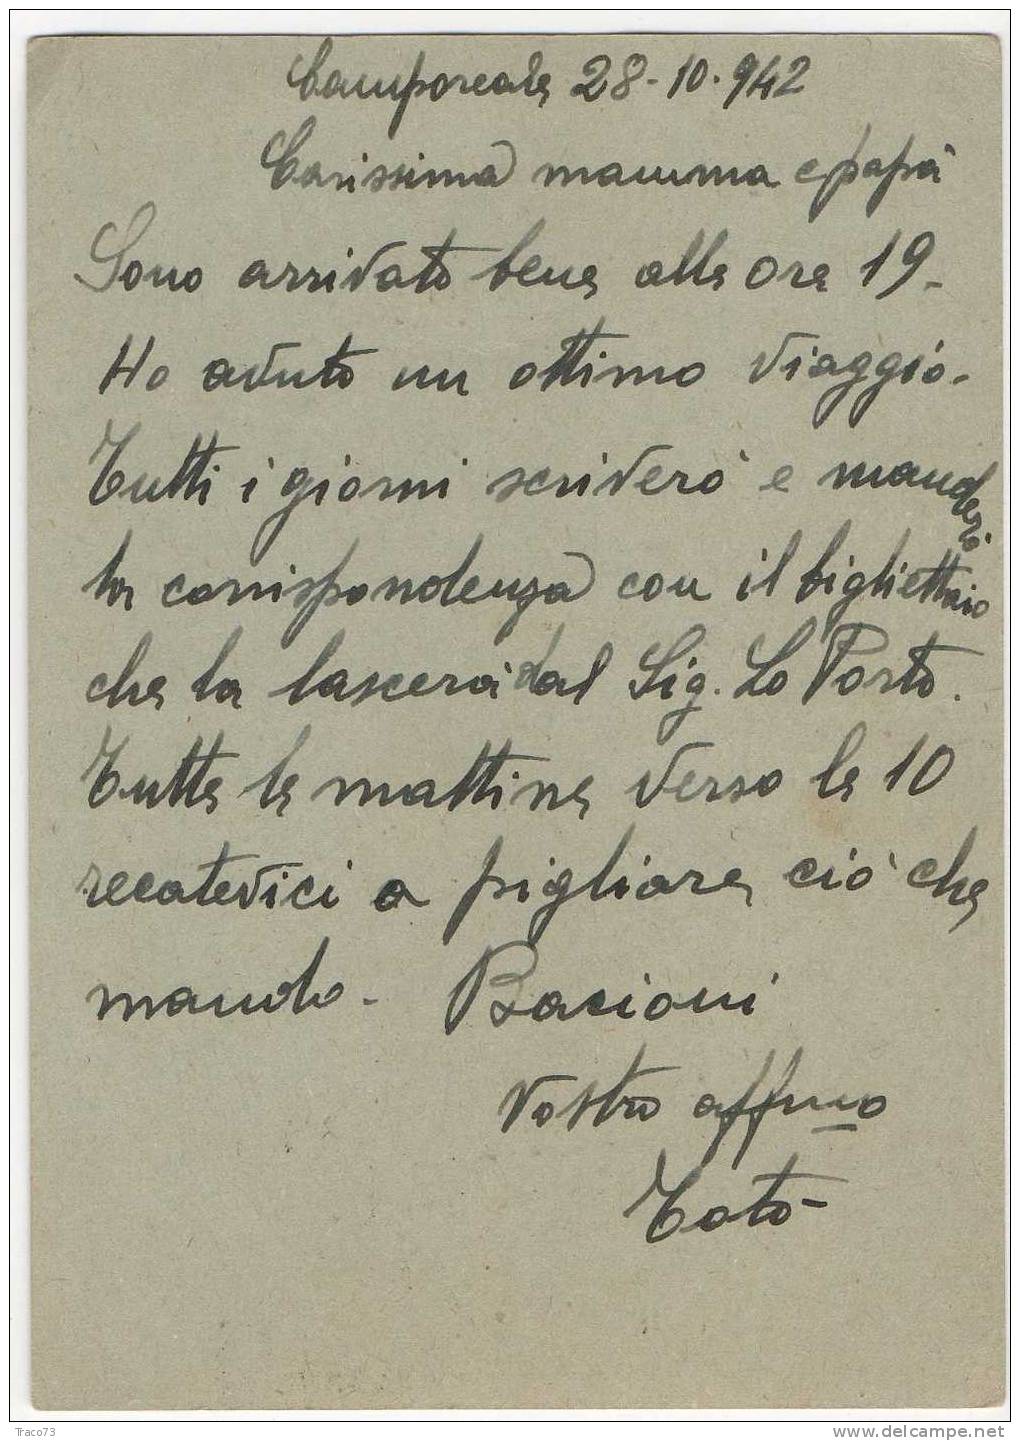 Camporeale 28-10-942
Carissima mamma e papà
Sono arrivato bene alle ore 19-
Ho avuto un ottimo viaggio-
Tutti i giorni scriverò e manderò
la corrispondenza con il bigliettaio
che la lascerà dal Sig. Lo Porto.
Tutte le mattine verso le 10
recatevici a pigliare ciò che
mando- Bacioni
Vostro affmo
Totò-
Traco73
www.delcampe.net